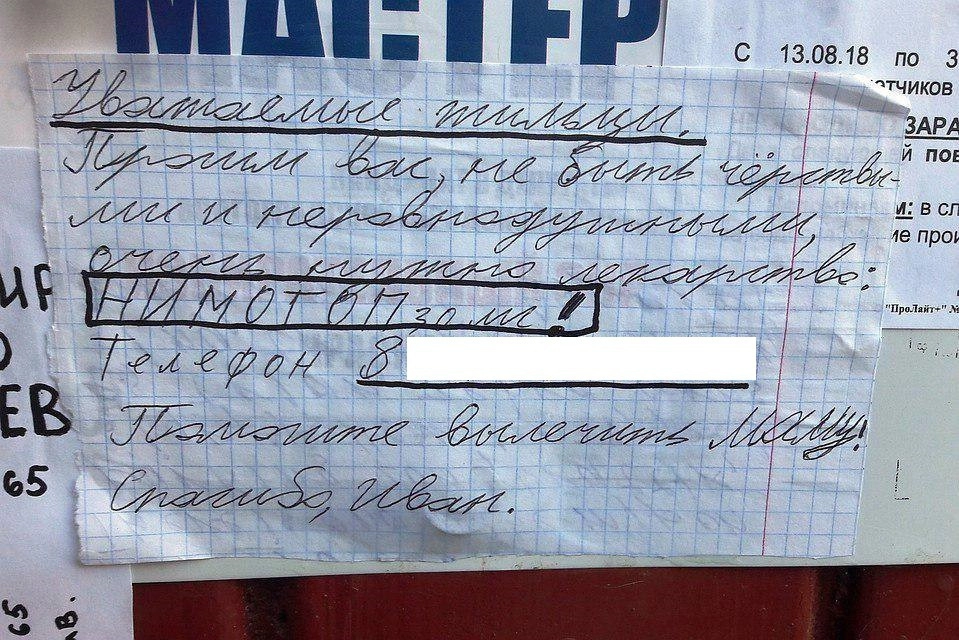 МАСТЕР
С 13.08.18 по 3
отчиков
ЗАРА
й пов
м: в сл
ие прои
"ПроЛайт+" №
Уважаемые жильцы.
Просим вас, не быть чёрствы-
ми и неравнодушными,
очень нужно лекарство:
НИМОТОП 30 мг!
Телефон 8
Помогите вылечить Маму!
Спасибо, Иван.
ЕВ
65
65